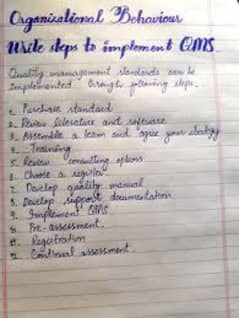 Organizational Behaviour
Write steps to implement QMS
Quality management standards can be
implemented through following steps.
1. Purchase standard
2. Review literature and software
3. Assemble a team and agree your strategy
4. Training
5. Review consulting options
6. Choose a register
7. Develop quality manual
8. Develop support documentation
9. Implement QMS
10. Pre-assessment.
11. Registration
12. Continual assessment.